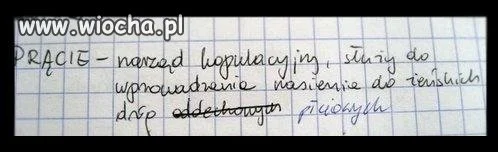 www.wiocha.pl
PRĄCIE - narząd kopulacyjny, służy do
wprowadzenia nasienia do żeńskich
dróg oddechowych płciowych